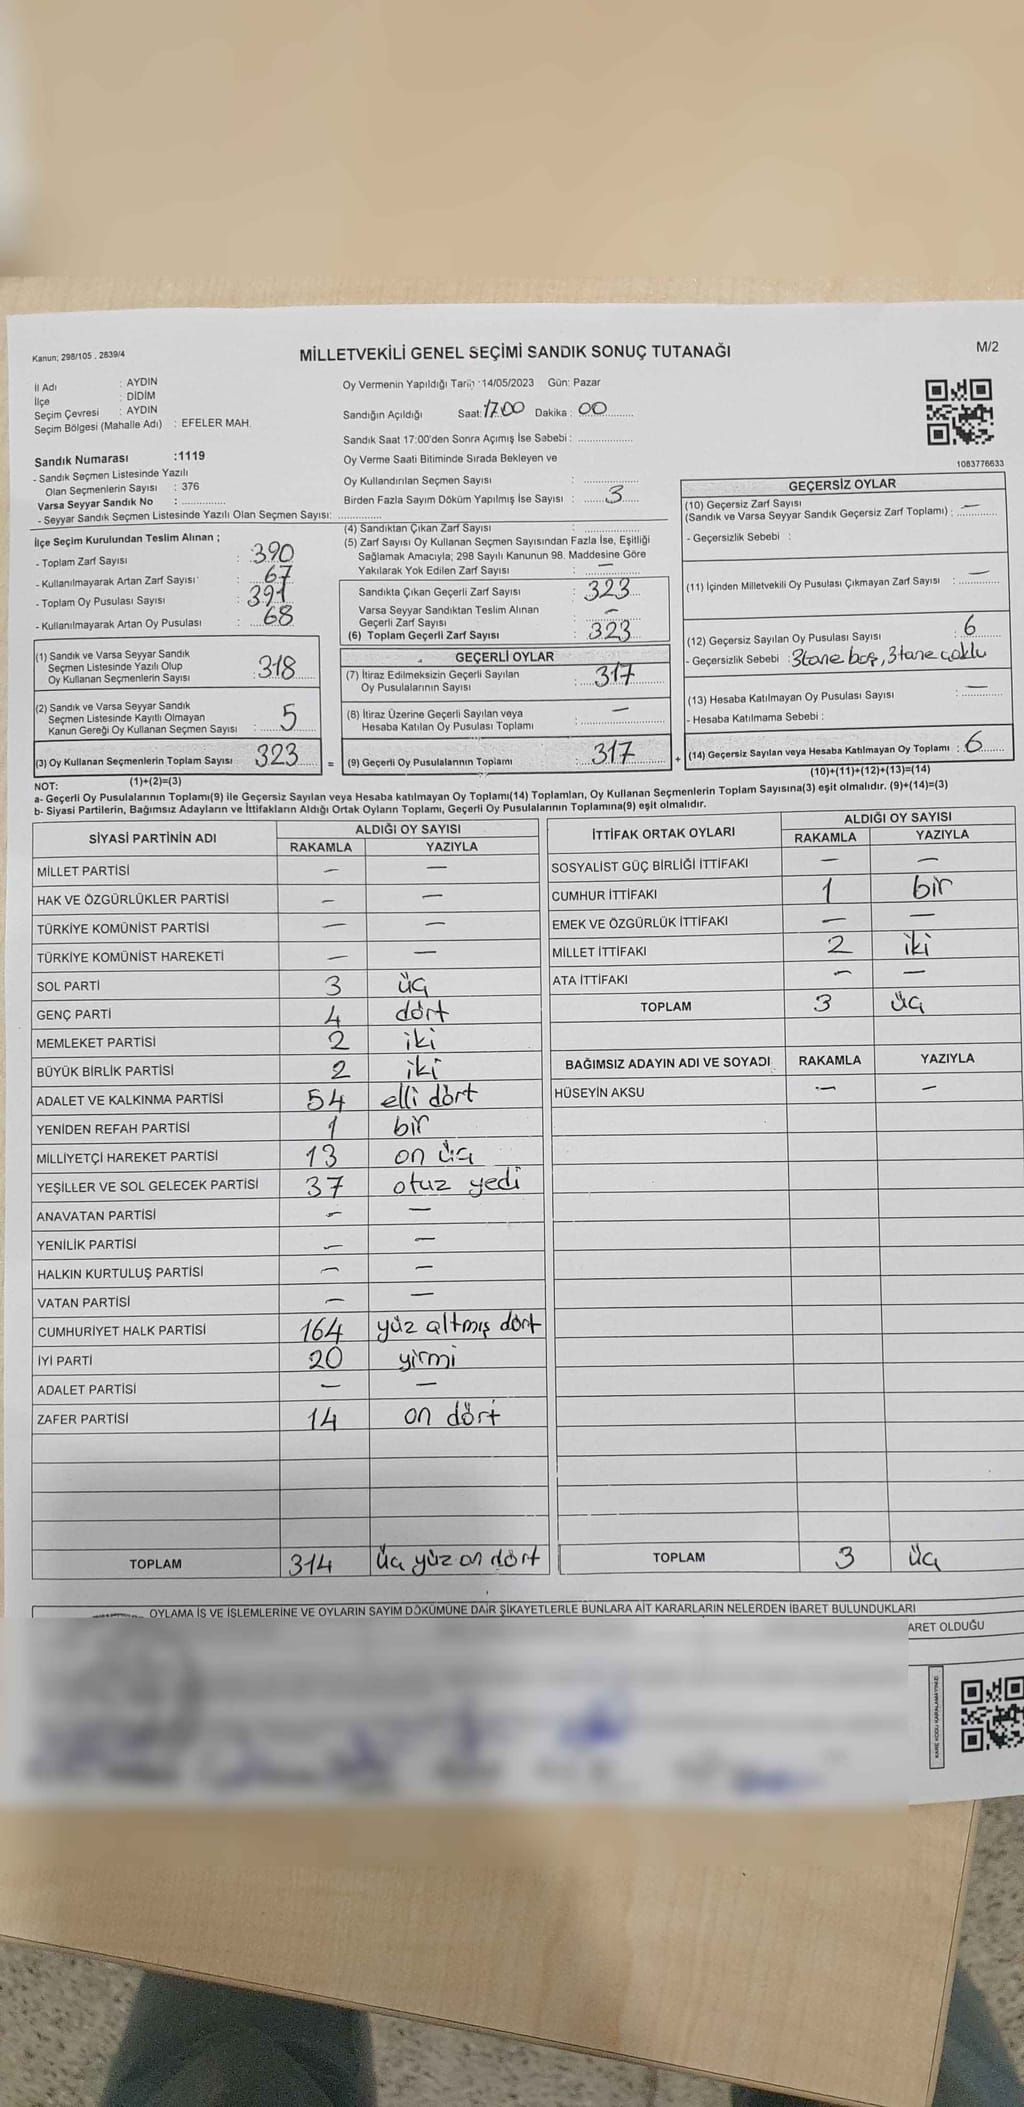 Kanun; 298/105 , 2839/4
MİLLETVEKİLİ GENEL SEÇİMİ SANDIK SONUÇ TUTANAĞI
M/2
İl Adı : AYDIN
İlçe : DİDİM
Seçim Çevresi : AYDIN
Seçim Bölgesi (Mahalle Adı) : EFELER MAH.
Sandık Numarası :1119
- Sandık Seçmen Listesinde Yazılı
Olan Seçmenlerin Sayısı : 376
Varsa Seyyar Sandık No : ............
- Seyyar Sandık Seçmen Listesinde Yazılı Olan Seçmen Sayısı: ............
Oy Vermenin Yapıldığı Tarih :14/05/2023 Gün: Pazar
Sandığın Açıldığı Saat: 17.00 Dakika : 00
Sandık Saat 17:00'den Sonra Açımış İse Sebebi : ............
Oy Verme Saati Bitiminde Sırada Bekleyen ve
Oy Kullandırılan Seçmen Sayısı : ............
Birden Fazla Sayım Döküm Yapılmış İse Sayısı : 3
1083776633
İlçe Seçim Kurulundan Teslim Alınan ;
- Toplam Zarf Sayısı : 390
- Kullanılmayarak Artan Zarf Sayısı : 67
- Toplam Oy Pusulası Sayısı : 391
- Kullanılmayarak Artan Oy Pusulası : 68
(1) Sandık ve Varsa Seyyar Sandık
Seçmen Listesinde Yazılı Olup
Oy Kullanan Seçmenlerin Sayısı : 318
(2) Sandık ve Varsa Seyyar Sandık
Seçmen Listesinde Kayıtlı Olmayan
Kanun Gereği Oy Kullanan Seçmen Sayısı : 5
(3) Oy Kullanan Seçmenlerin Toplam Sayısı 323
(4) Sandıktan Çıkan Zarf Sayısı : ............
(5) Zarf Sayısı Oy Kullanan Seçmen Sayısından Fazla İse, Eşitliği
Sağlamak Amacıyla; 298 Sayılı Kanunun 98. Maddesine Göre
Yakılarak Yok Edilen Zarf Sayısı : —
Sandıkta Çıkan Geçerli Zarf Sayısı : 323
Varsa Seyyar Sandıktan Teslim Alınan
Geçerli Zarf Sayısı : —
(6) Toplam Geçerli Zarf Sayısı : 323
GEÇERLİ OYLAR
(7) İtiraz Edilmeksizin Geçerli Sayılan
Oy Pusulalarının Sayısı : 317
(8) İtiraz Üzerine Geçerli Sayılan veya
Hesaba Katılan Oy Pusulası Toplamı : —
= (9) Geçerli Oy Pusulalarının Toplamı : 317
GEÇERSİZ OYLAR
(10) Geçersiz Zarf Sayısı
(Sandık ve Varsa Seyyar Sandık Geçersiz Zarf Toplamı) : —
- Geçersizlik Sebebi :
(11) İçinden Milletvekili Oy Pusulası Çıkmayan Zarf Sayısı : —
(12) Geçersiz Sayılan Oy Pusulası Sayısı : 6
- Geçersizlik Sebebi : 3tane boş, 3tane çoklu
(13) Hesaba Katılmayan Oy Pusulası Sayısı : —
- Hesaba Katılmama Sebebi :
+ (14) Geçersiz Sayılan veya Hesaba Katılmayan Oy Toplamı : 6
NOT: (1)+(2)=(3)
(10)+(11)+(12)+(13)=(14)
a- Geçerli Oy Pusulalarının Toplamı(9) ile Geçersiz Sayılan veya Hesaba katılmayan Oy Toplamı(14) Toplamları, Oy Kullanan Seçmenlerin Toplam Sayısına(3) eşit olmalıdır. (9)+(14)=(3)
b- Siyasi Partilerin, Bağımsız Adayların ve İttifakların Aldığı Ortak Oyların Toplamı, Geçerli Oy Pusulalarının Toplamına(9) eşit olmalıdır.
SİYASİ PARTİNİN ADI ALDIĞI OY SAYISI
RAKAMLA YAZIYLA
MİLLET PARTİSİ — —
HAK VE ÖZGÜRLÜKLER PARTİSİ — —
TÜRKİYE KOMÜNİST PARTİSİ — —
TÜRKİYE KOMÜNİST HAREKETİ — —
SOL PARTİ 3 üç
GENÇ PARTİ 4 dört
MEMLEKET PARTİSİ 2 iki
BÜYÜK BİRLİK PARTİSİ 2 iki
ADALET VE KALKINMA PARTİSİ 54 elli dört
YENİDEN REFAH PARTİSİ 1 bir
MİLLİYETÇİ HAREKET PARTİSİ 13 on üç
YEŞİLLER VE SOL GELECEK PARTİSİ 37 otuz yedi
ANAVATAN PARTİSİ — —
YENİLİK PARTİSİ — —
HALKIN KURTULUŞ PARTİSİ — —
VATAN PARTİSİ — —
CUMHURİYET HALK PARTİSİ 164 yüz altmış dört
İYİ PARTİ 20 yirmi
ADALET PARTİSİ — —
ZAFER PARTİSİ 14 on dört
TOPLAM 314 üç yüz on dört
İTTİFAK ORTAK OYLARI ALDIĞI OY SAYISI
RAKAMLA YAZIYLA
SOSYALİST GÜÇ BİRLİĞİ İTTİFAKI — —
CUMHUR İTTİFAKI 1 bir
EMEK VE ÖZGÜRLÜK İTTİFAKI — —
MİLLET İTTİFAKI 2 iki
ATA İTTİFAKI — —
TOPLAM 3 üç
BAĞIMSIZ ADAYIN ADI VE SOYADI RAKAMLA YAZIYLA
HÜSEYİN AKSU — —
TOPLAM 3 üç
OYLAMA İŞ VE İŞLEMLERİNE VE OYLARIN SAYIM DÖKÜMÜNE DAİR ŞİKAYETLERLE BUNLARA AİT KARARLARIN NELERDEN İBARET BULUNDUKLARI
ARET OLDUĞU
KARE KODU KARALAMAYINIZ